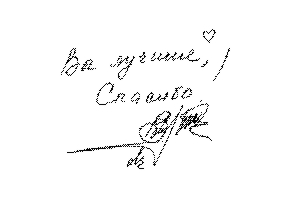 Вы лучшие, ♡
Спасибо